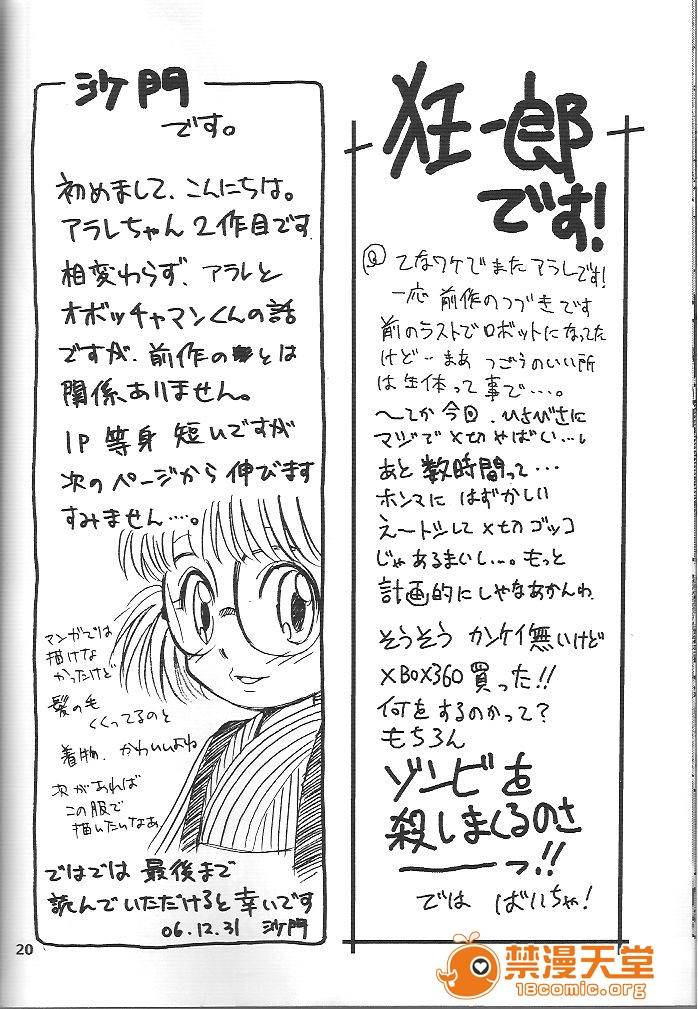 狂一郎
です!
てなワケでまたアラレです!
一応 前作のつづきです
前のラストでロボットになってた
けど…まあ つごうのいい所
は生体って事で…。
〜てか今回、ひさびさに
マジで〆切やばい…。
あと数時間って…
ホンマに はずかしい
え〜トシして〆切ゴッコ
じゃあるまいし…。もっと
計画的にしゃなあかんわ
そうそう カンケイ無いけど
XBOX360買った!!
何をするのかって?
もちろん
ゾンビを
殺しまくるのさ
――っ!!
では ばいちゃ!
沙門
です。
初めまして、こんにちは。
アラレちゃん2作目です
相変わらず、アラレと
オボッチャマンくんの話
ですが、前作のとは
関係ありません。
1P 等身 短いですが
次のページから伸びます
すみません…。
マンガでは
描けな
かったけど
髪の毛
くくってるのと
着物、かわいいよね
次があれば
この服で
描いたいなあ
ではでは 最後まで
読んでいただけると幸いです
06.12.31 沙門
20
禁漫天堂
18comic.org